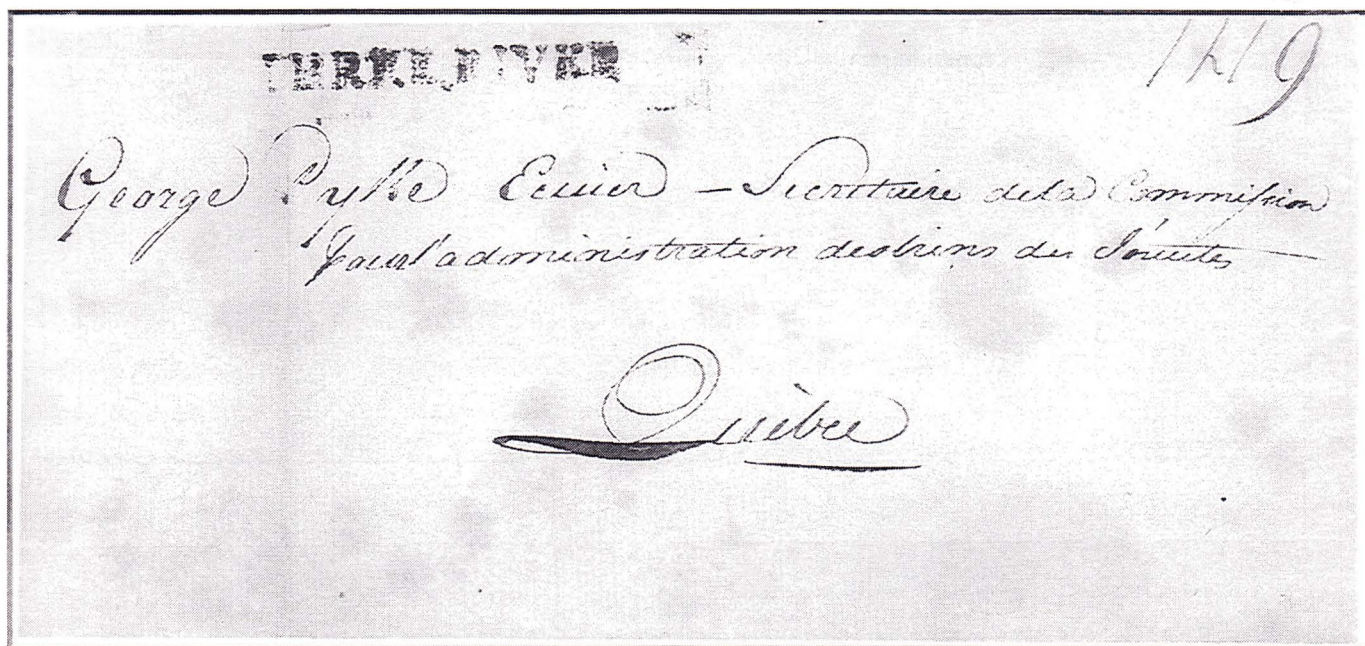 THREE RIVER
George Pyke Ecuier – Secretaire de la Commission
pour l'administration des biens des Jésuites
Québec